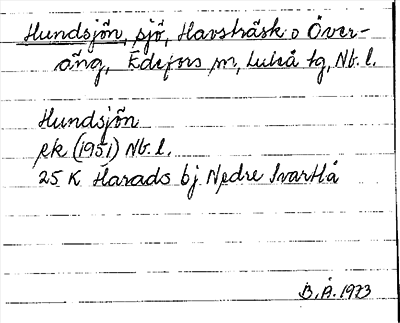 Hundsjön, sjö, Havsträsk o Över-
äng, Edefors sn, Luleå tg, Nb. l.
Hundsjön
ek (1951) Nb. l.
25 K Harads bj Nedre Svartlå
B. Å. 1973